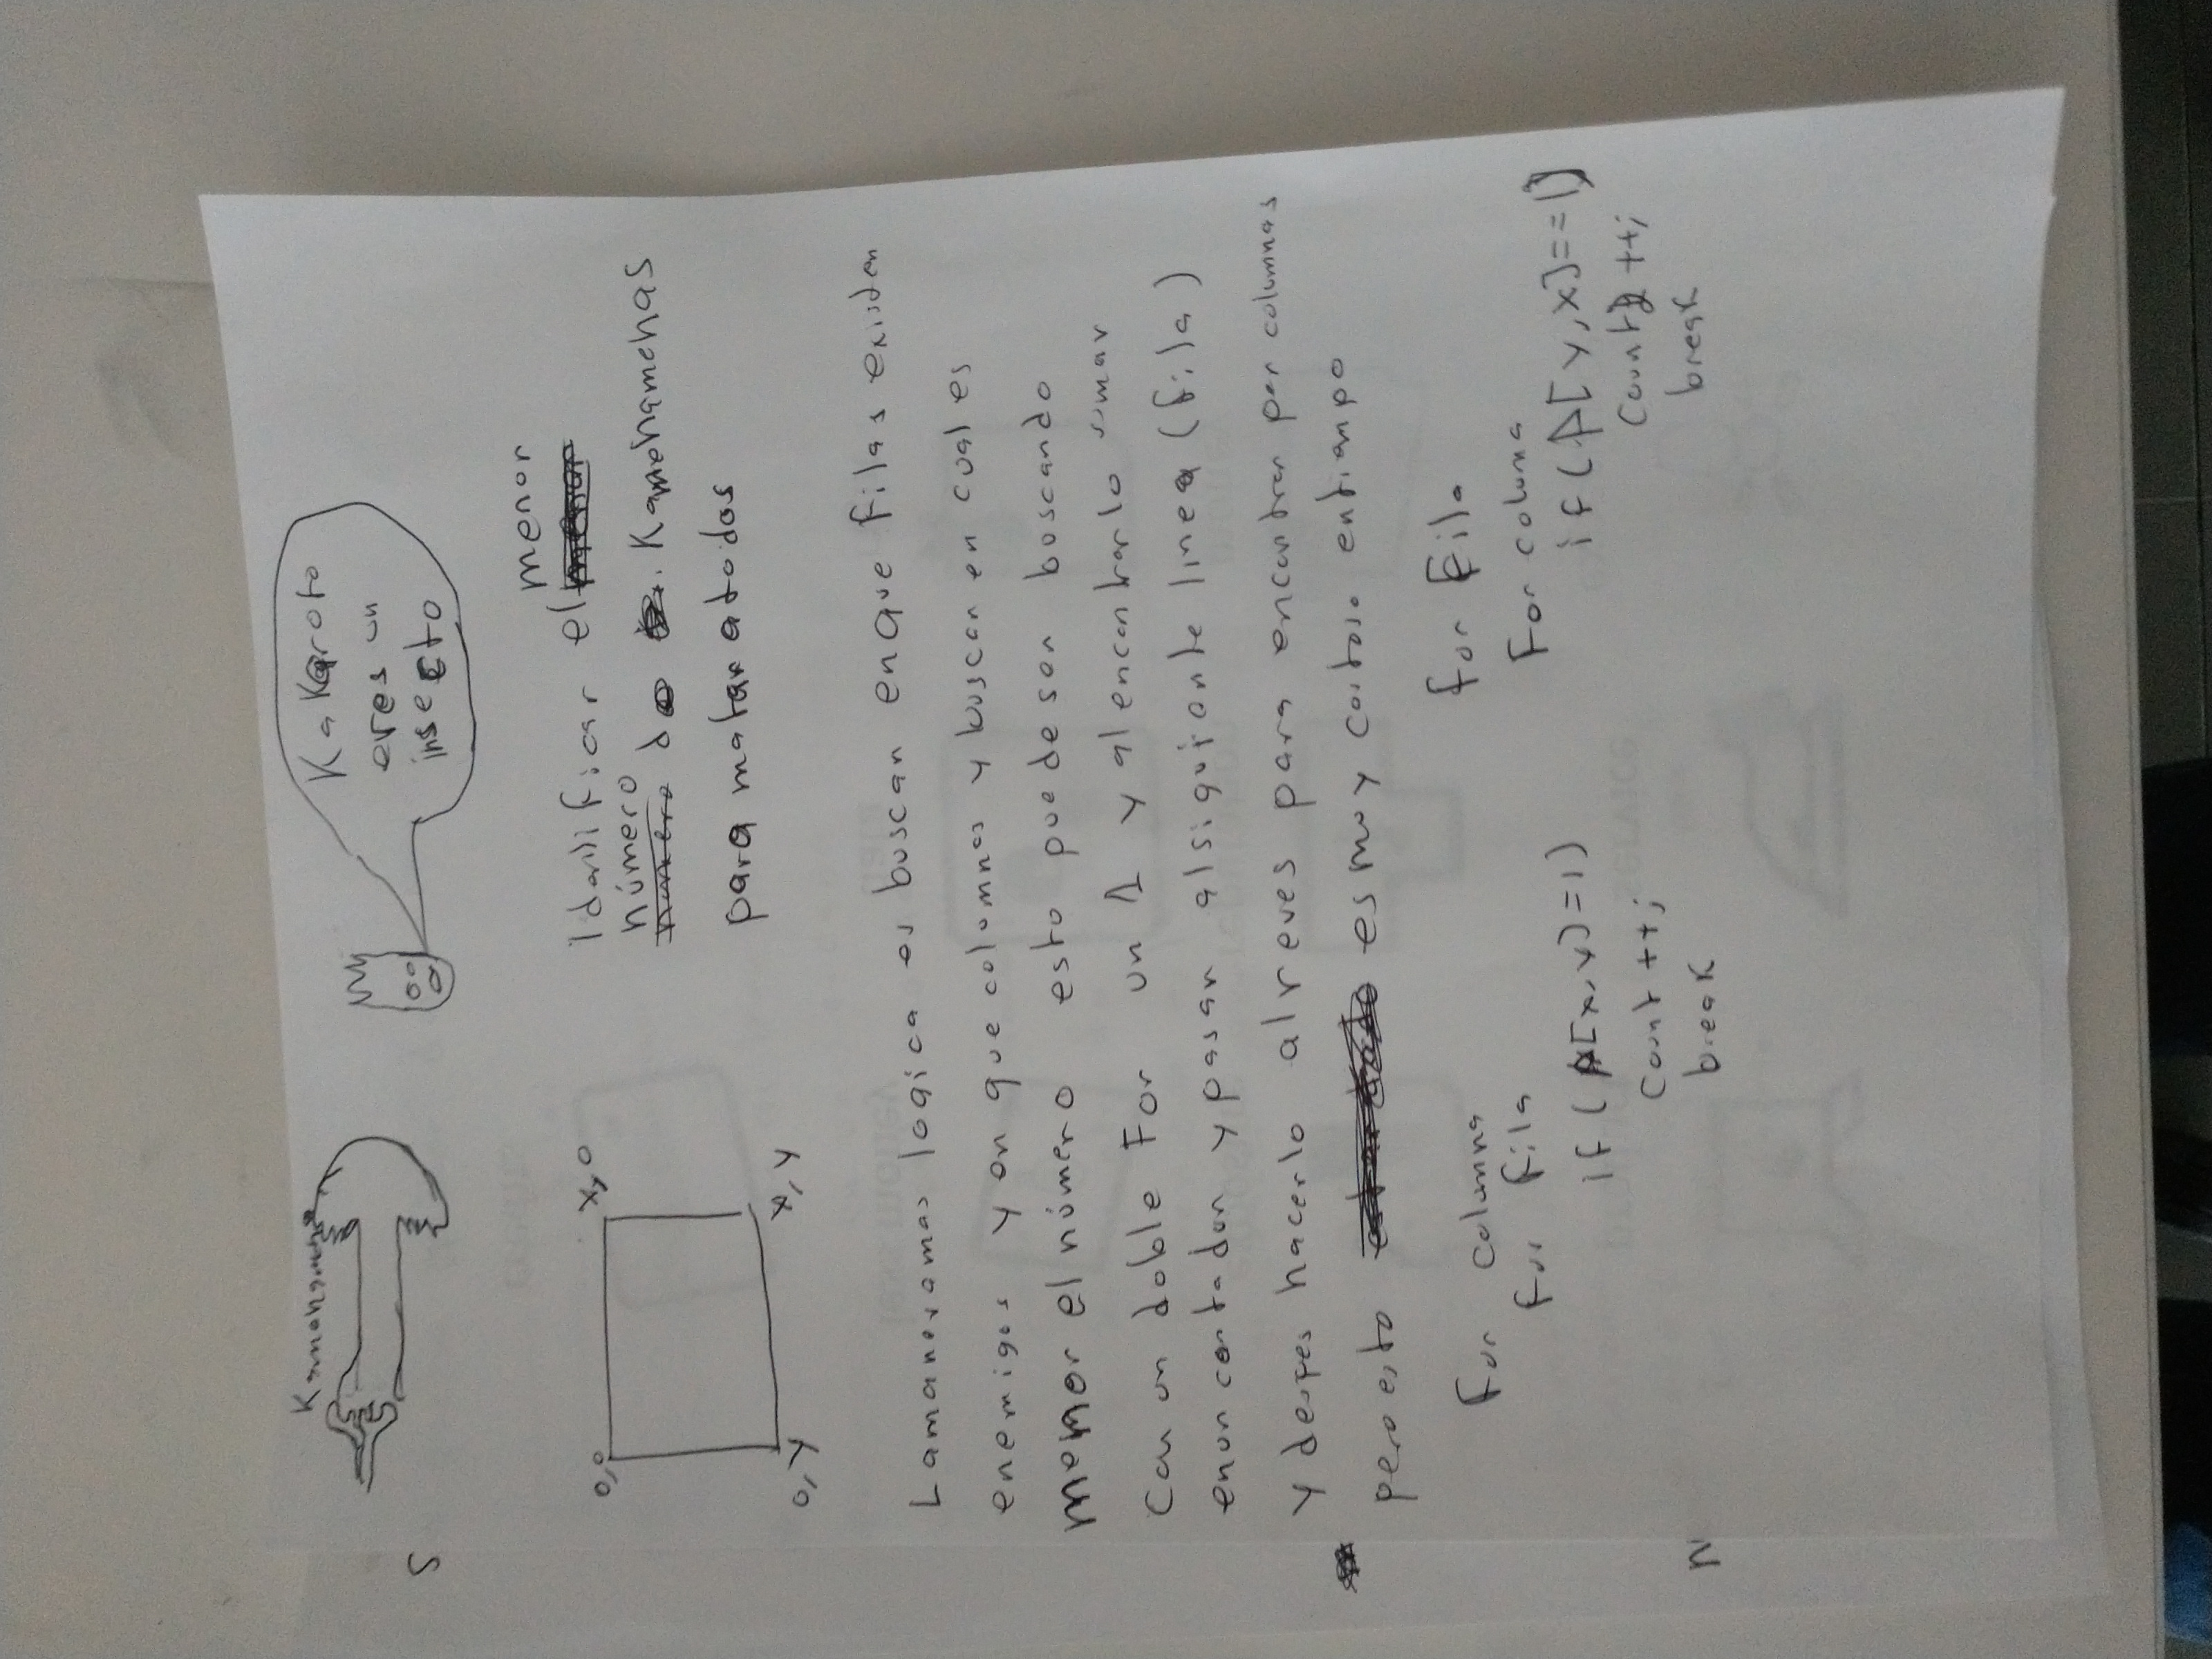 Kamehameha
KaKaroto
eres un
insecto
S
0,0
x,0
0,Y
x,Y
menor
Identificar el
número
de Kamehamehas
para matar a todos
La manera mas logica es buscar en que filas existen
enemigos y en que columnas y buscar en cual es
menor el número esto puede ser buscando
Con un doble For un 1 y al encontrarlo sumar
en un contador y pasar al siguiente linea (fila)
y despes hacerlo al reves para encontrar por columnas
pero esto es muy costoso en tiempo
For columna
For fila
if (A[x,y]=1)
count ++;
break
for Fila
For coluna
if (A[y,x]==1)
count2 ++;
break
n